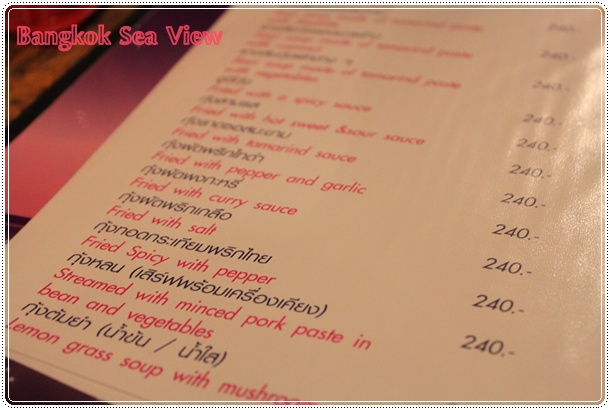 Bangkok Sea View
made of tamarind paste 240.-
soup made of tamarind paste 240.-
with vegetables
Fried with a spicy sauce 240.-
Fried with hot sweet &sour sauce 240.-
Fried with tamarind sauce 240.-
กุ้งผัดพริกไทดำ
Fried with pepper and garlic 240.-
กุ้งผัดผงกะหรี่
Fried with curry sauce 240.-
กุ้งผัดพริกเกลือ
Fried with salt 240.-
กุ้งทอดกระเทียมพริกไทย
Fried Spicy with pepper 240.-
กุ้งหลน (เสิร์ฟพร้อมเครื่องเคียง)
Streamed with minced pork paste in 240.-
bean and vegetables
กุ้งต้มยำ (น้ำข้น / น้ำใส)
Lemon grass soup with mushroom